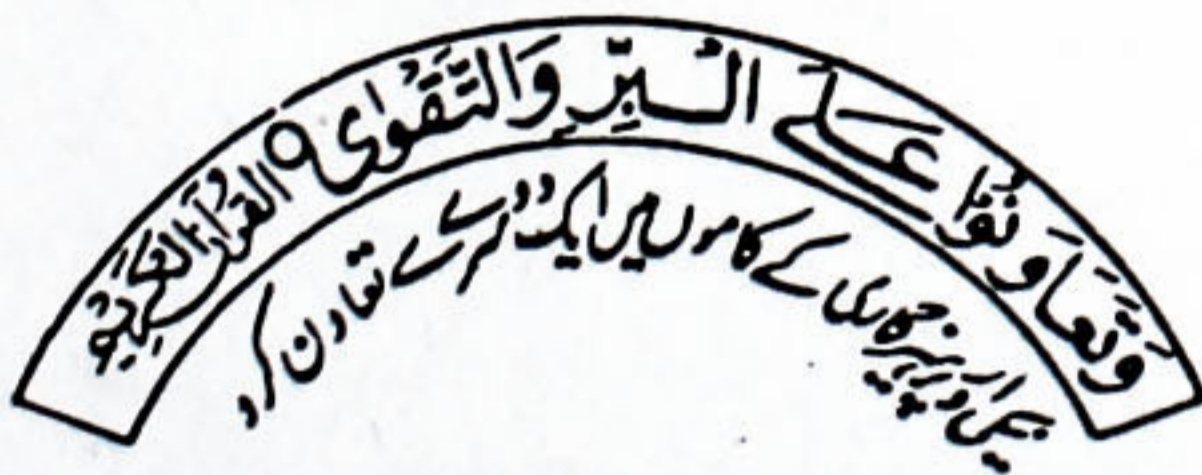 وَتَعَاوَنُوْا عَلَی الْبِرِّ وَالتَّقْوٰی ٥ القرآن
نیکی اور پرہیزگاری کے کاموں میں ایک دوسرے سے تعاون کرو